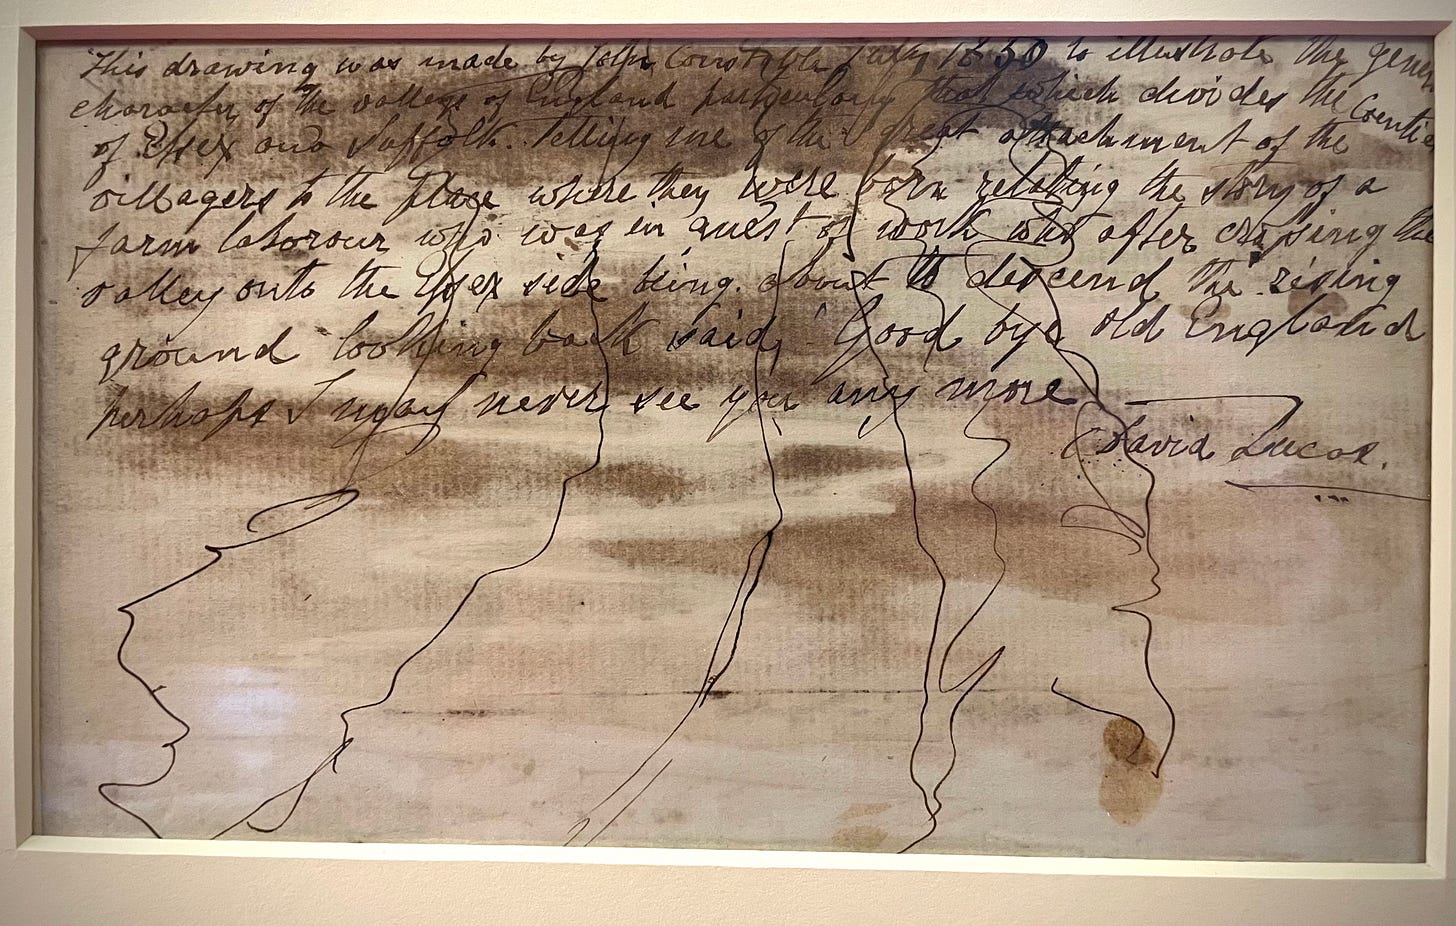 This drawing was made by John Constable July 1830 to illustrate the gener
character of the valleys of England particulary that which divides the Counties
of Essex and Suffolk. Telling me of the great attachment of the
villagers to the place where they were born relating the story of a
farm laborour who was in quest of work who after crossing the
valley onto the Essex side being about to descend the rising
ground looking back said, "Good bye old England
perhaps I may never see you any more
David Lucas.